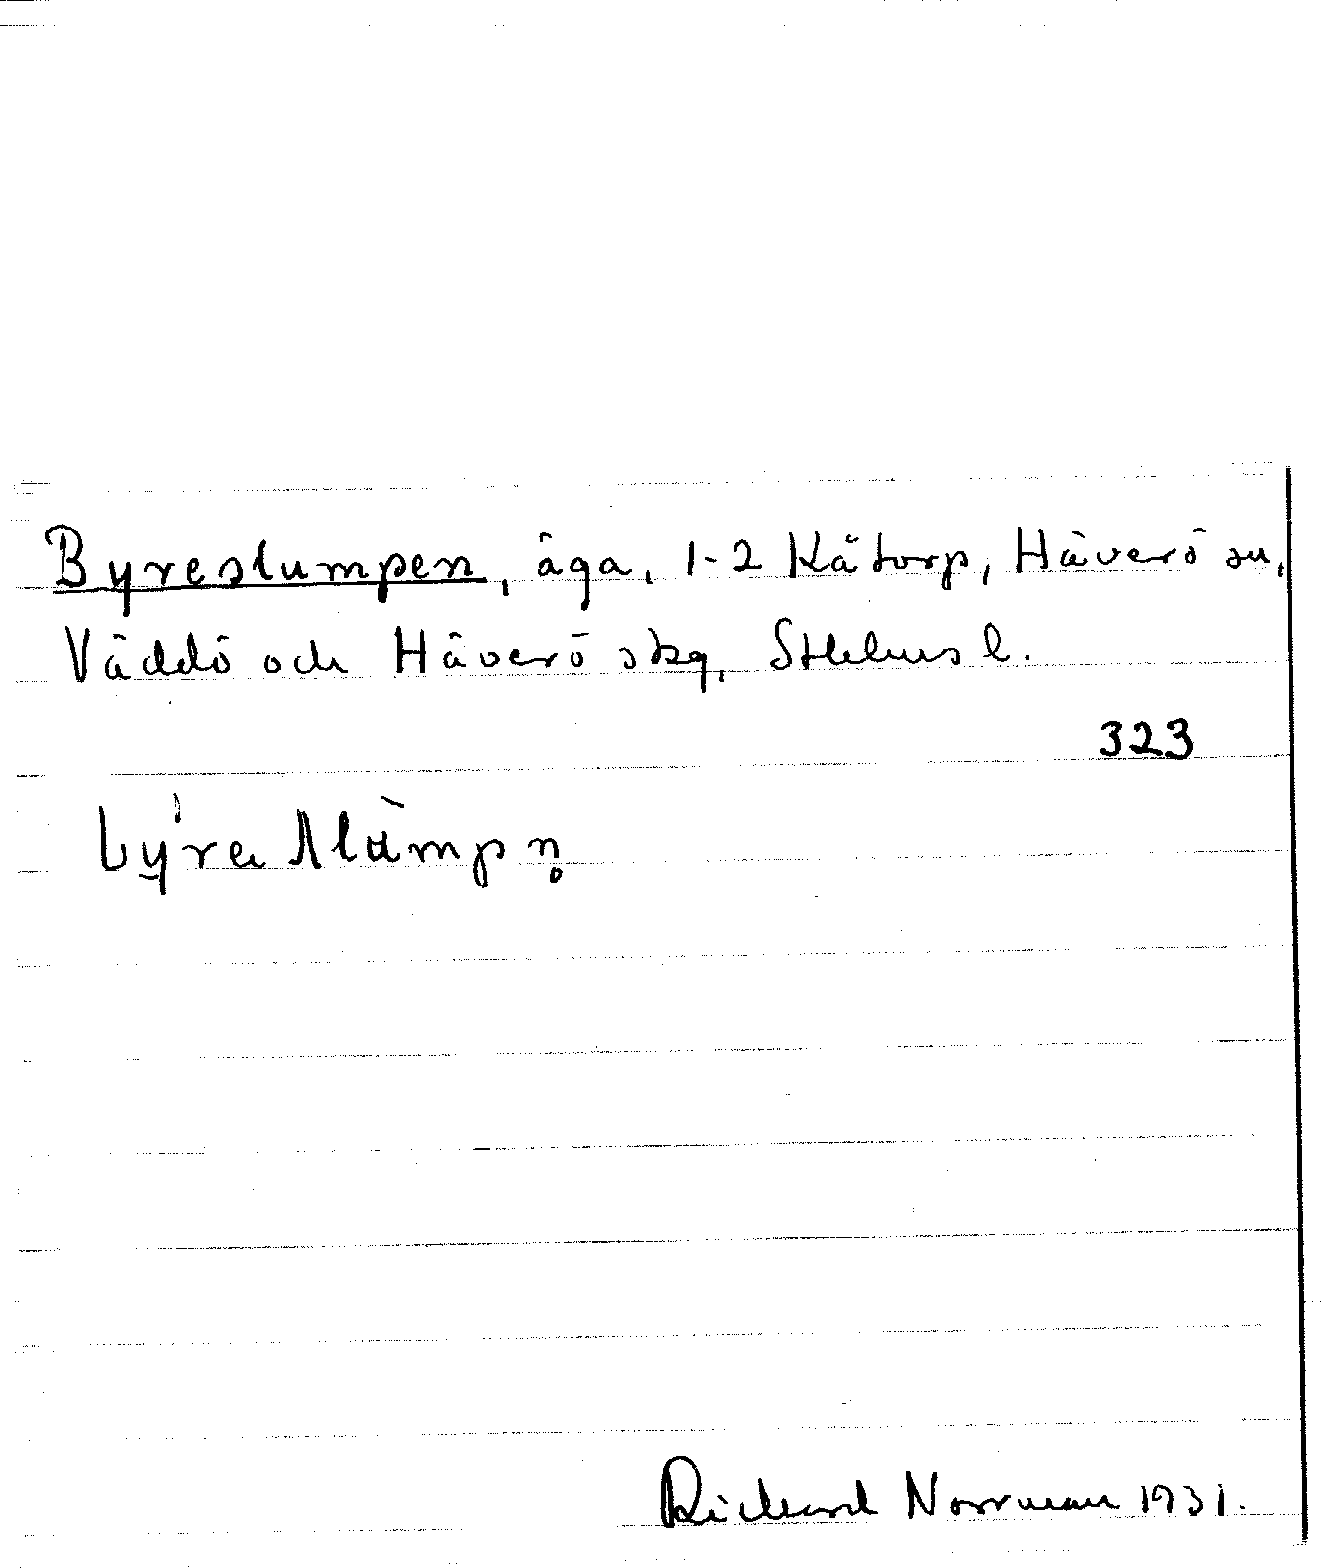 Byreslumpen, äga, 1-2 Kätorp, Häverö sn,
Väddö och Häverö skg, Sthlms l.
323
Richard Norrman 1931.